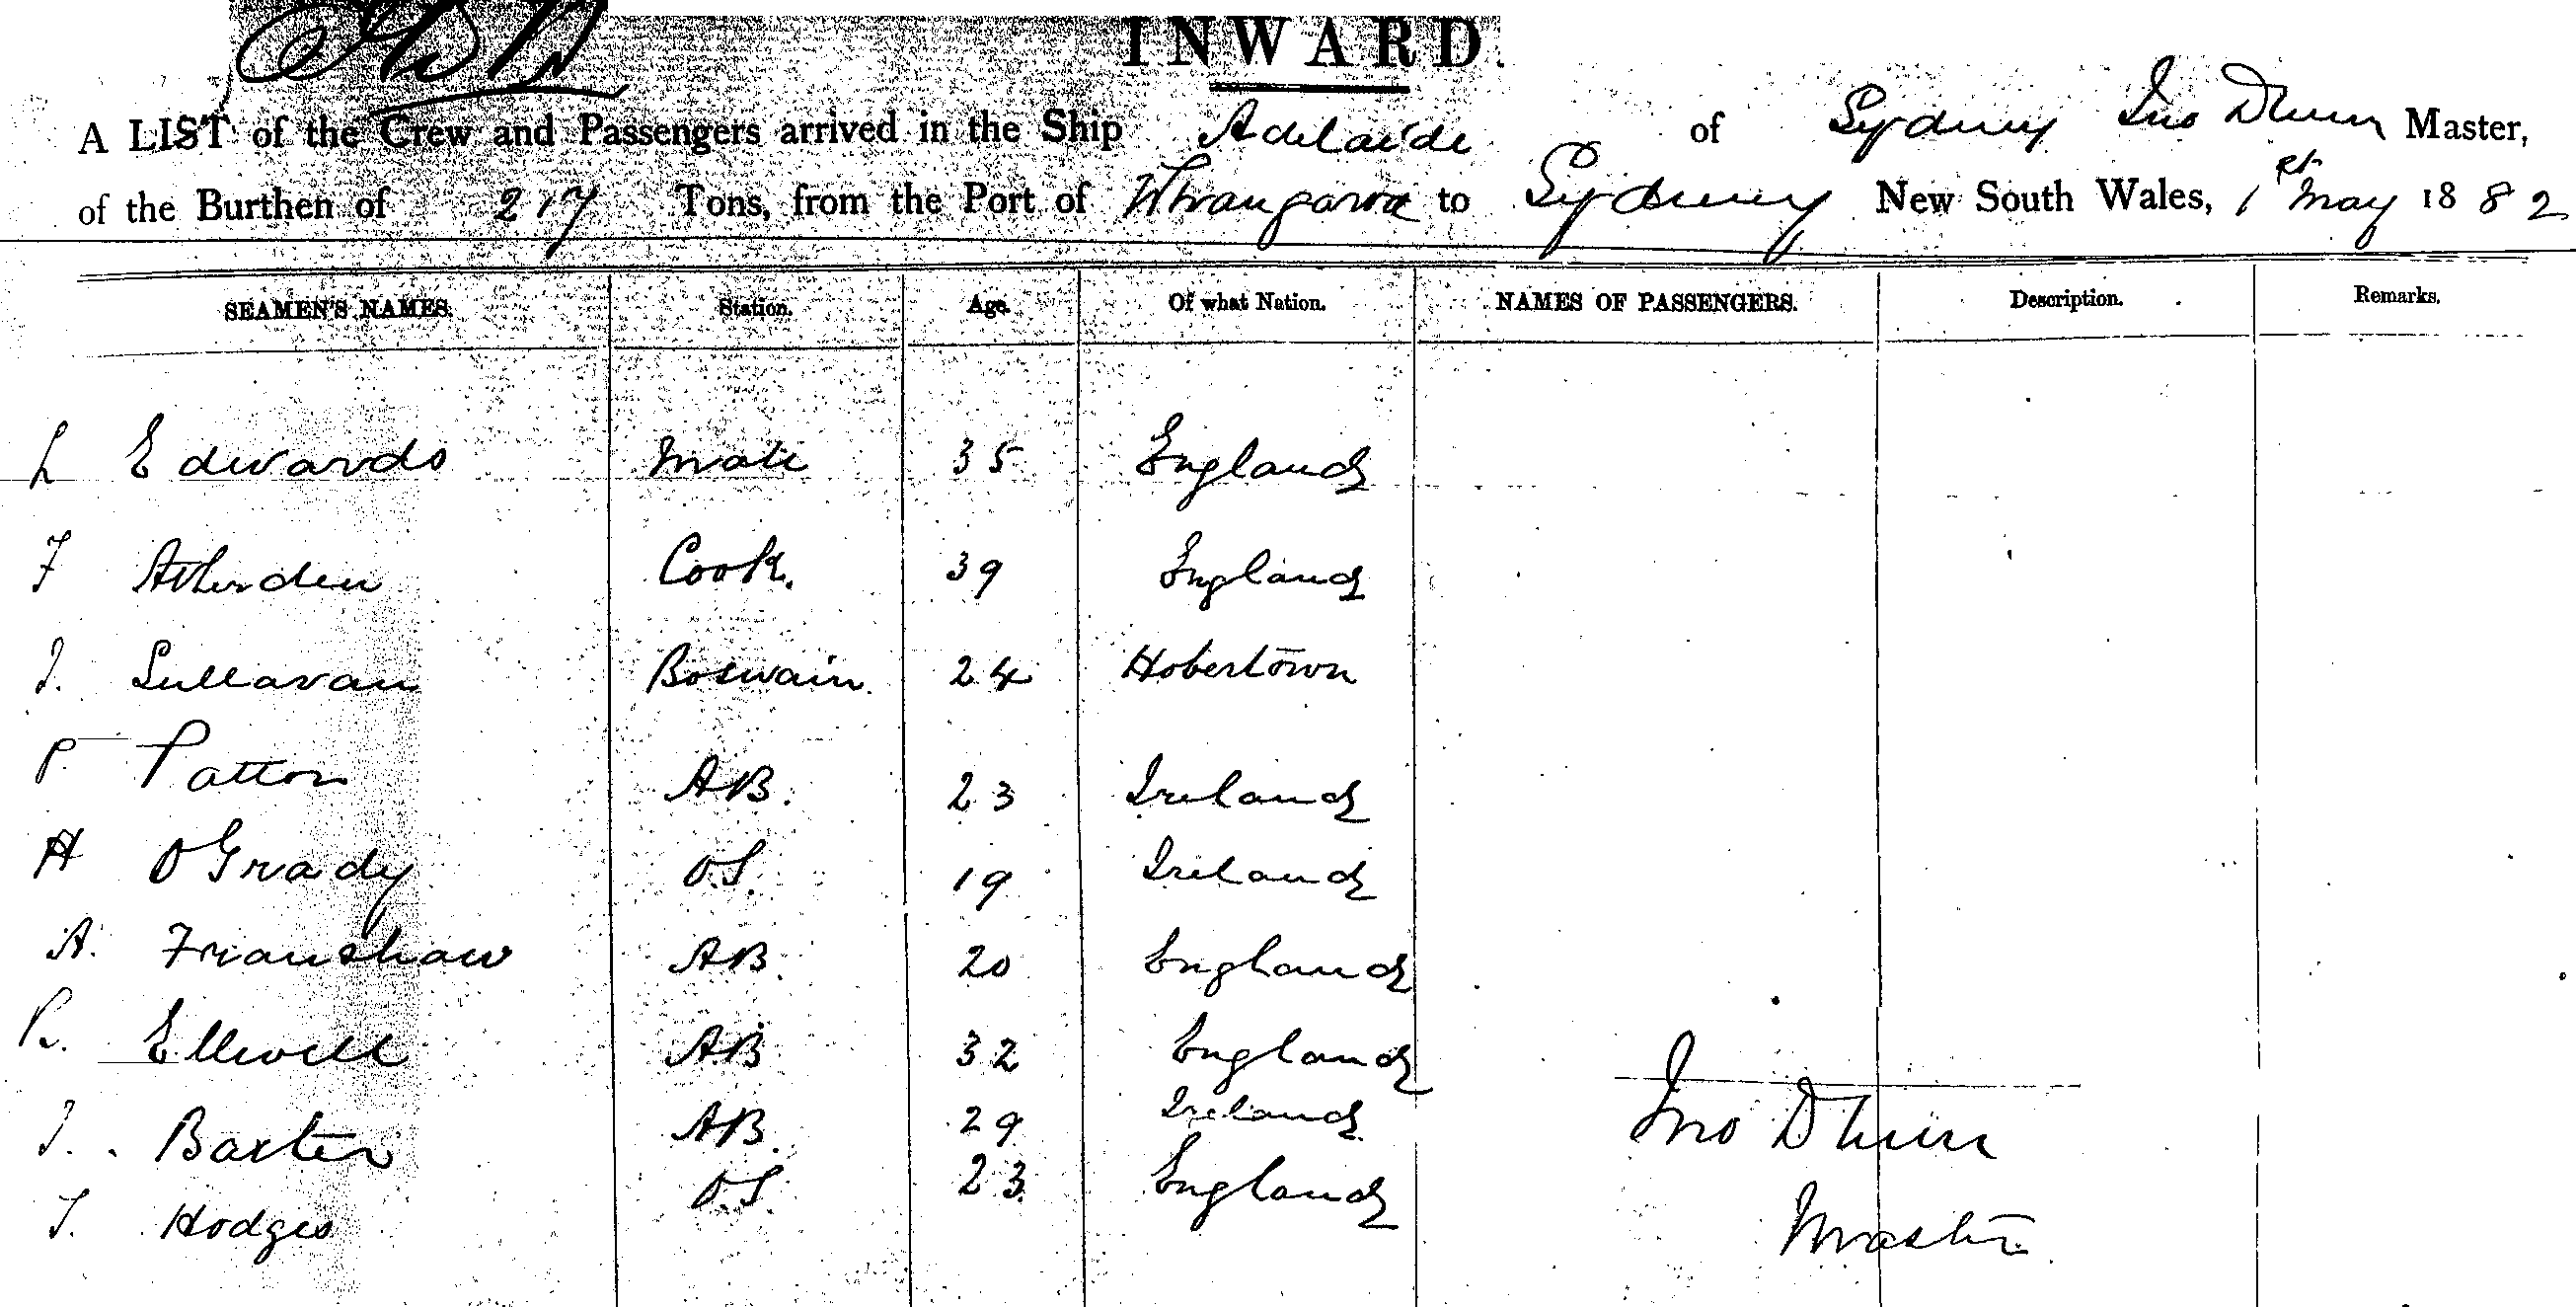 INWARD.
A LIST of the Crew and Passengers arrived in the Ship Adelaide of Sydney Jno Master,
of the Burthen of 217 Tons, from the Port of Whangaroa to Sydney New South Wales, 1st May 1882
SEAMEN'S NAMES. Station. Age. Of what Nation. NAMES OF PASSENGERS. Description. Remarks.
L Edwards Mate 35 England
F Atherden Cook. 39 England
J. Sullavan Boswain. 24 Hobertown
P. Patton AB. 23 Ireland
H O Grady O.S. 19 Ireland
A. Franshaw AB. 20 England
R. Ellwell AB 32 England
J. Baxter AB. 29 Ireland
T. Hodges O.S. 23 England
Jno
Master